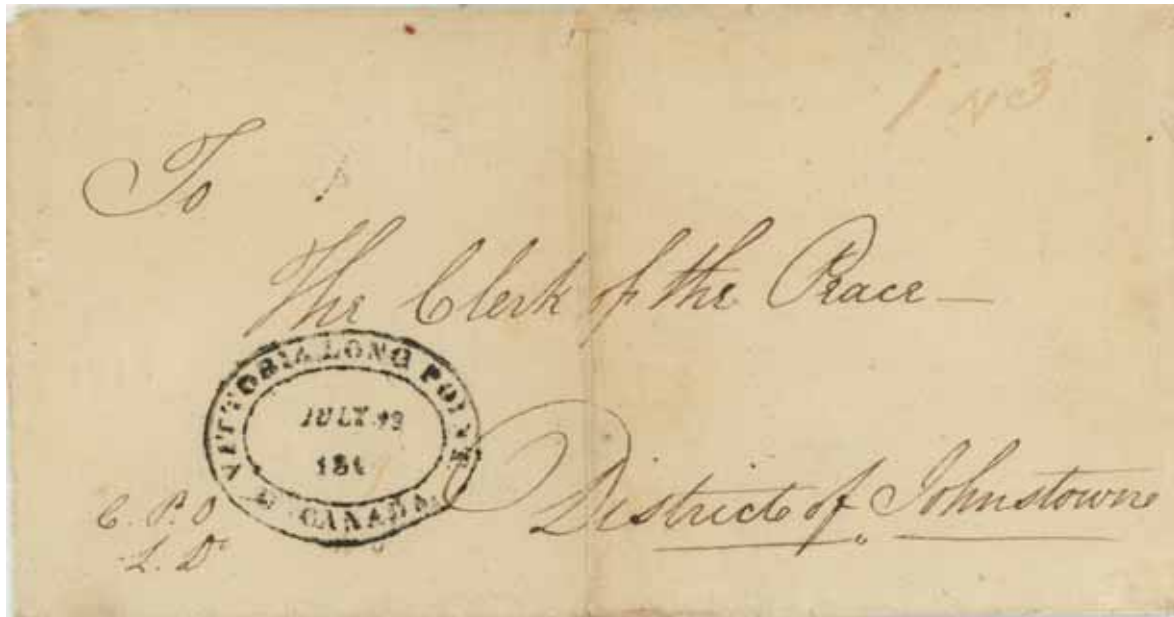 1 N 3
To
The Clerk of the Peace —
VITTORIA LONG POINT
JULY
184
U. CANADA.
C. P. O
L. D.
District of Johnstown